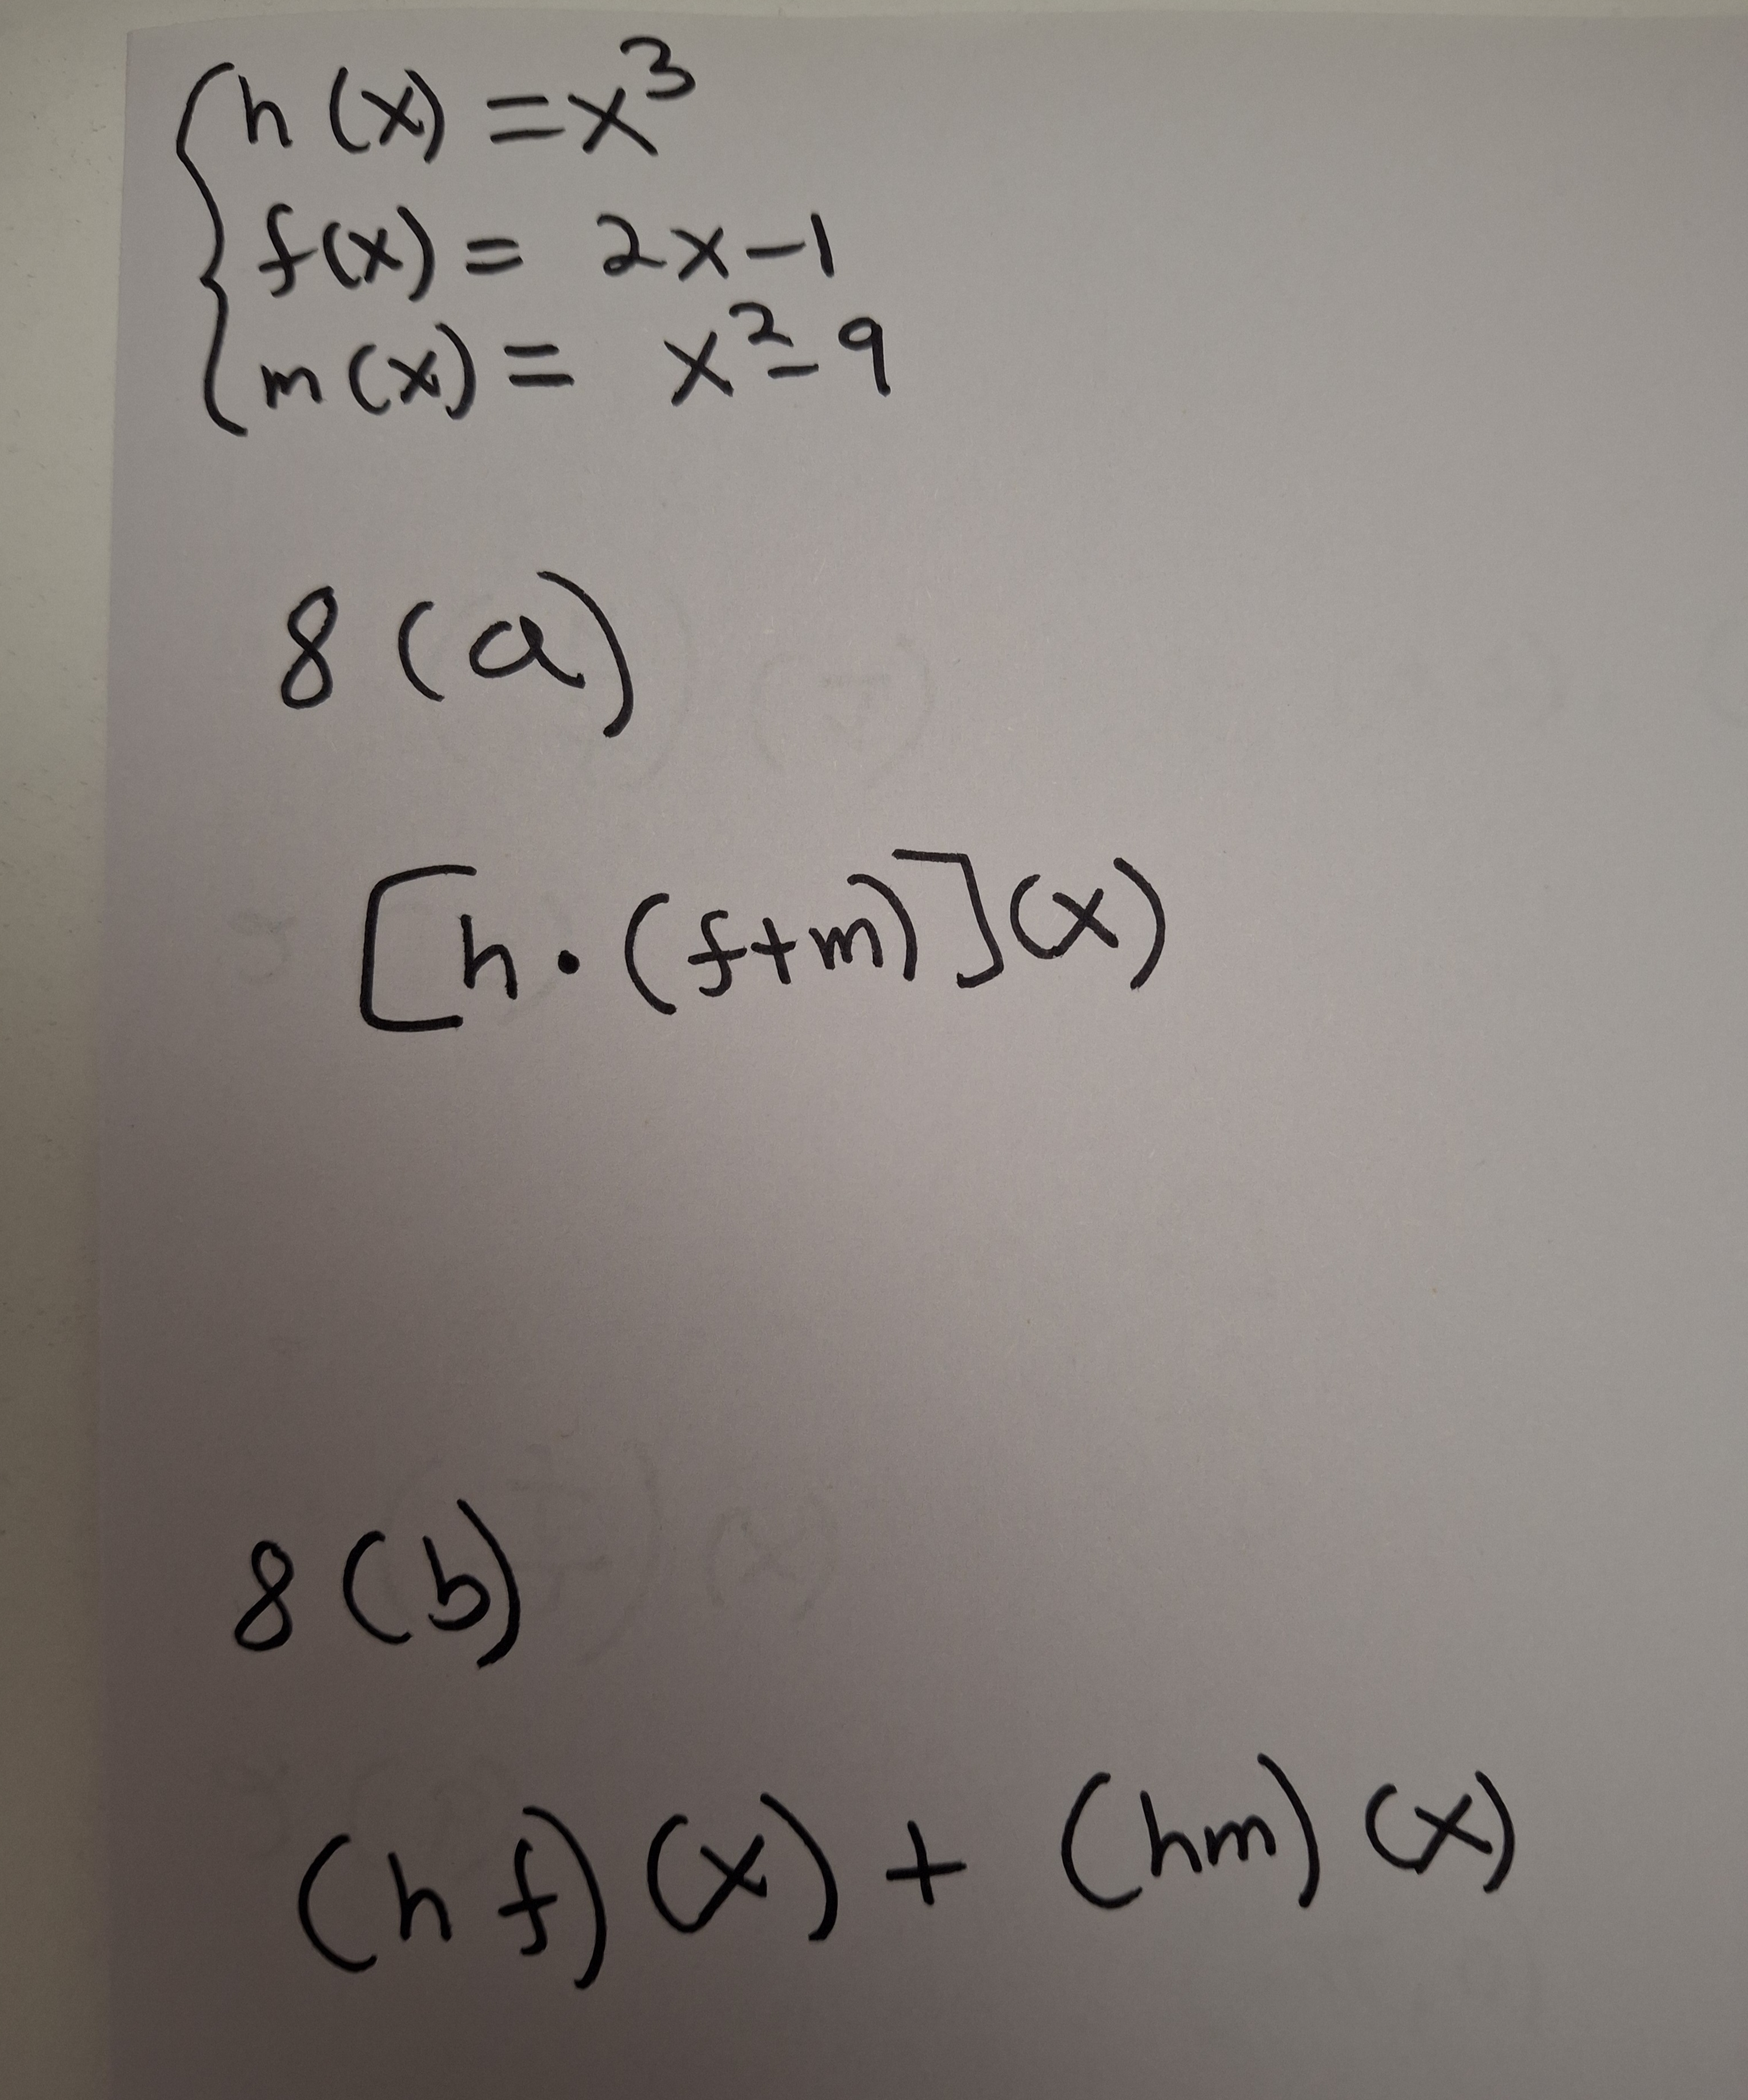 h(x) = x³
f(x) = 2x-1
m(x) = x²-9
8(a)
[h·(f+m)](x)
8(b)
(hf)(x) + (hm)(x)